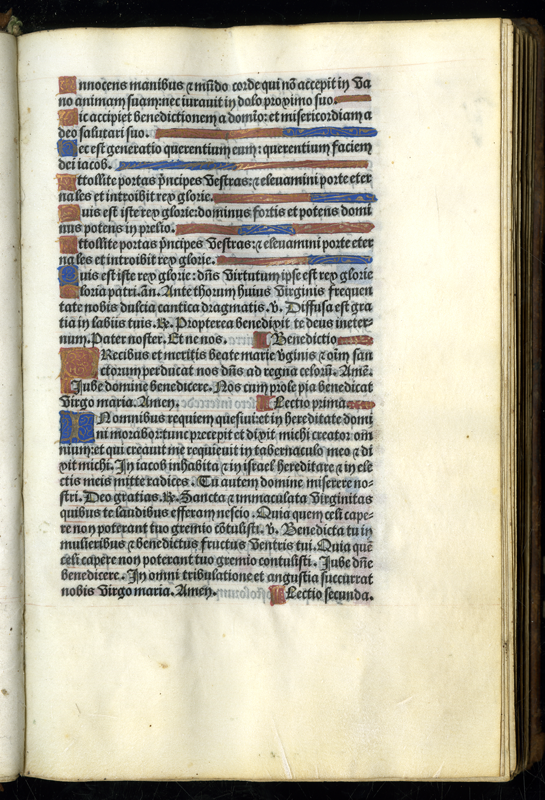 Innocens manibus ⁊ mũdo corde qui nõ accepit in va
no animam suam: nec iurauit in dolo proximo suo.
Hic accipiet benedictionem a domĩo: et misericordiam a
deo salutari suo.
Hec est generatio querentium eum: querentium faciem
dei iacob.
Attollite portas p̃ncipes vestras: ⁊ eleuamini porte eter
nales et introibit rex glorie.
Quis est iste rex glorie: dominus fortis et potens domi
nus potens in prelio.
Attollite portas p̃ncipes vestras: ⁊ eleuamini porte eter
nales et introibit rex glorie.
Quis est iste rex glorie: dñs virtutum ipse est rex glorie
Gloria patri. añ. Ante thorum huius virginis frequen
tate nobis dulcia cantica dragmatis. v. Diffusa est gra
tia in labiis tuis. ℟. Propterea benedixit te deus in eter-
num. Pater noster. Et ne nos. Benedictio
PRecibus et meritis beate marie v̑ginis ⁊ oĩm san
ctorum perducat nos dñs ad regna celorũ. Amẽ.
Jube domine benedicere. Nos cum prole pia benedicat
virgo maria. Amen. Lectio prima
IN omnibus requiem quesiui: et in hereditate domi
ni morabor: tunc precepit et dixit michi creator om
nium: et qui creauit me requieuit in tabernaculo meo ⁊ di
xit michi. In iacob inhabita ⁊ in israel hereditare ⁊ in ele
ctis meis mitte radices. Tu autem domine miserere no-
stri. Deo gratias. ℟. Sancta ⁊ immaculata virginitas
quibus te laudibus efferam nescio. Quia quem celi cape-
re non poterant tuo gremio cõtulisti. v. Benedicta tu in
mulieribus ⁊ benedictus fructus ventris tui. Quia quẽ
celi capere non poterant tuo gremio contulisti. Jube dñe
benedicere. In omni tribulatione et angustia succurrat
nobis virgo maria. Amen. Lectio secunda.